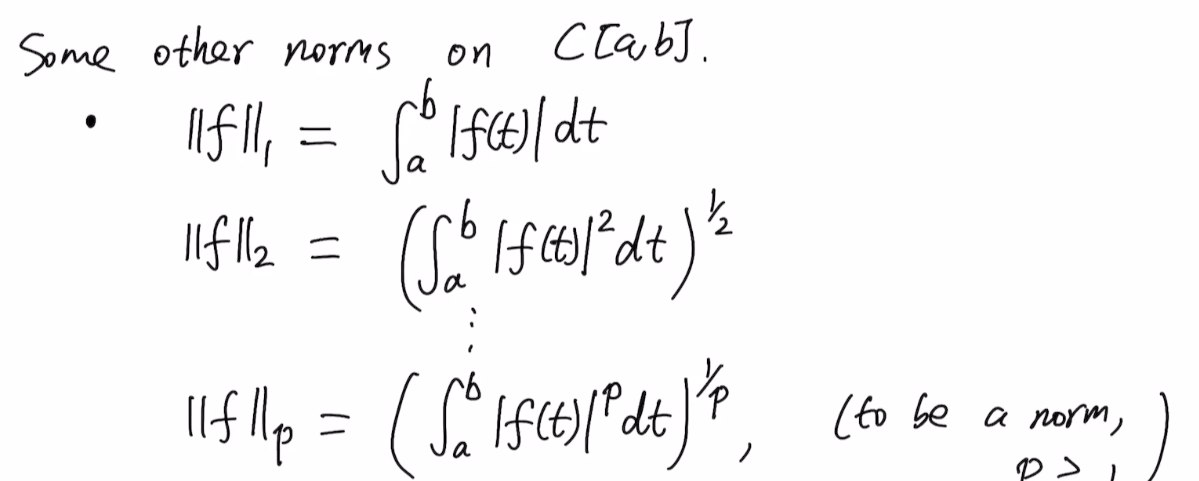 Some other norms on C[a,b].
• ||f||₁ = ∫ₐᵇ |f(t)| dt
||f||₂ = (∫ₐᵇ |f(t)|² dt)^½
⋮
||f||ₚ = (∫ₐᵇ |f(t)|ᵖ dt)^1/p, (to be a norm,
p > 1)